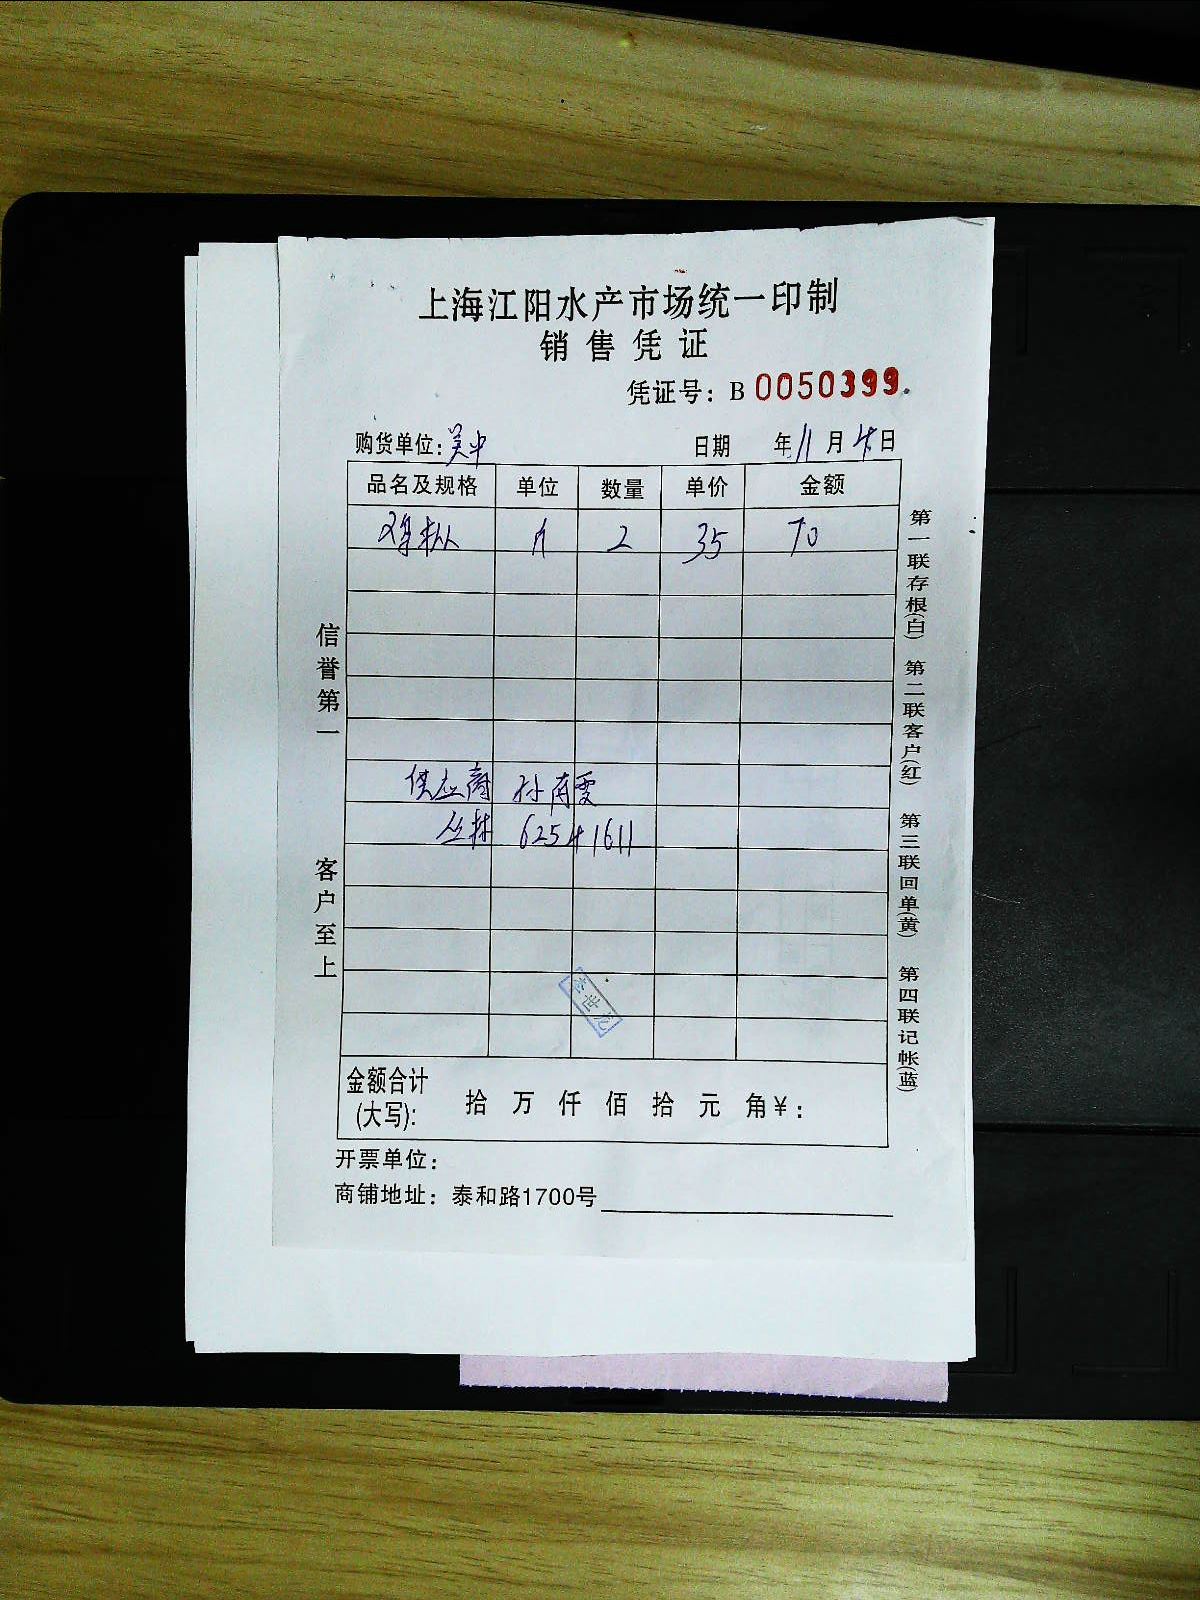 上海江阳水产市场统一印制
销售凭证
凭证号：B 0050399
购货单位：吴中
日期 年 11 月 4 日
品名及规格 单位 数量 单价 金额
鸡枞 2 35 70
供应商 孙南雯
丛林 62541611
李世龙
金额合计
(大写): 拾 万 仟 佰 拾 元 角 ¥：
开票单位：
商铺地址：泰和路1700号
信誉第一
客户至上
第一联存根(白) 第二联客户(红) 第三联回单(黄) 第四联记帐(蓝)